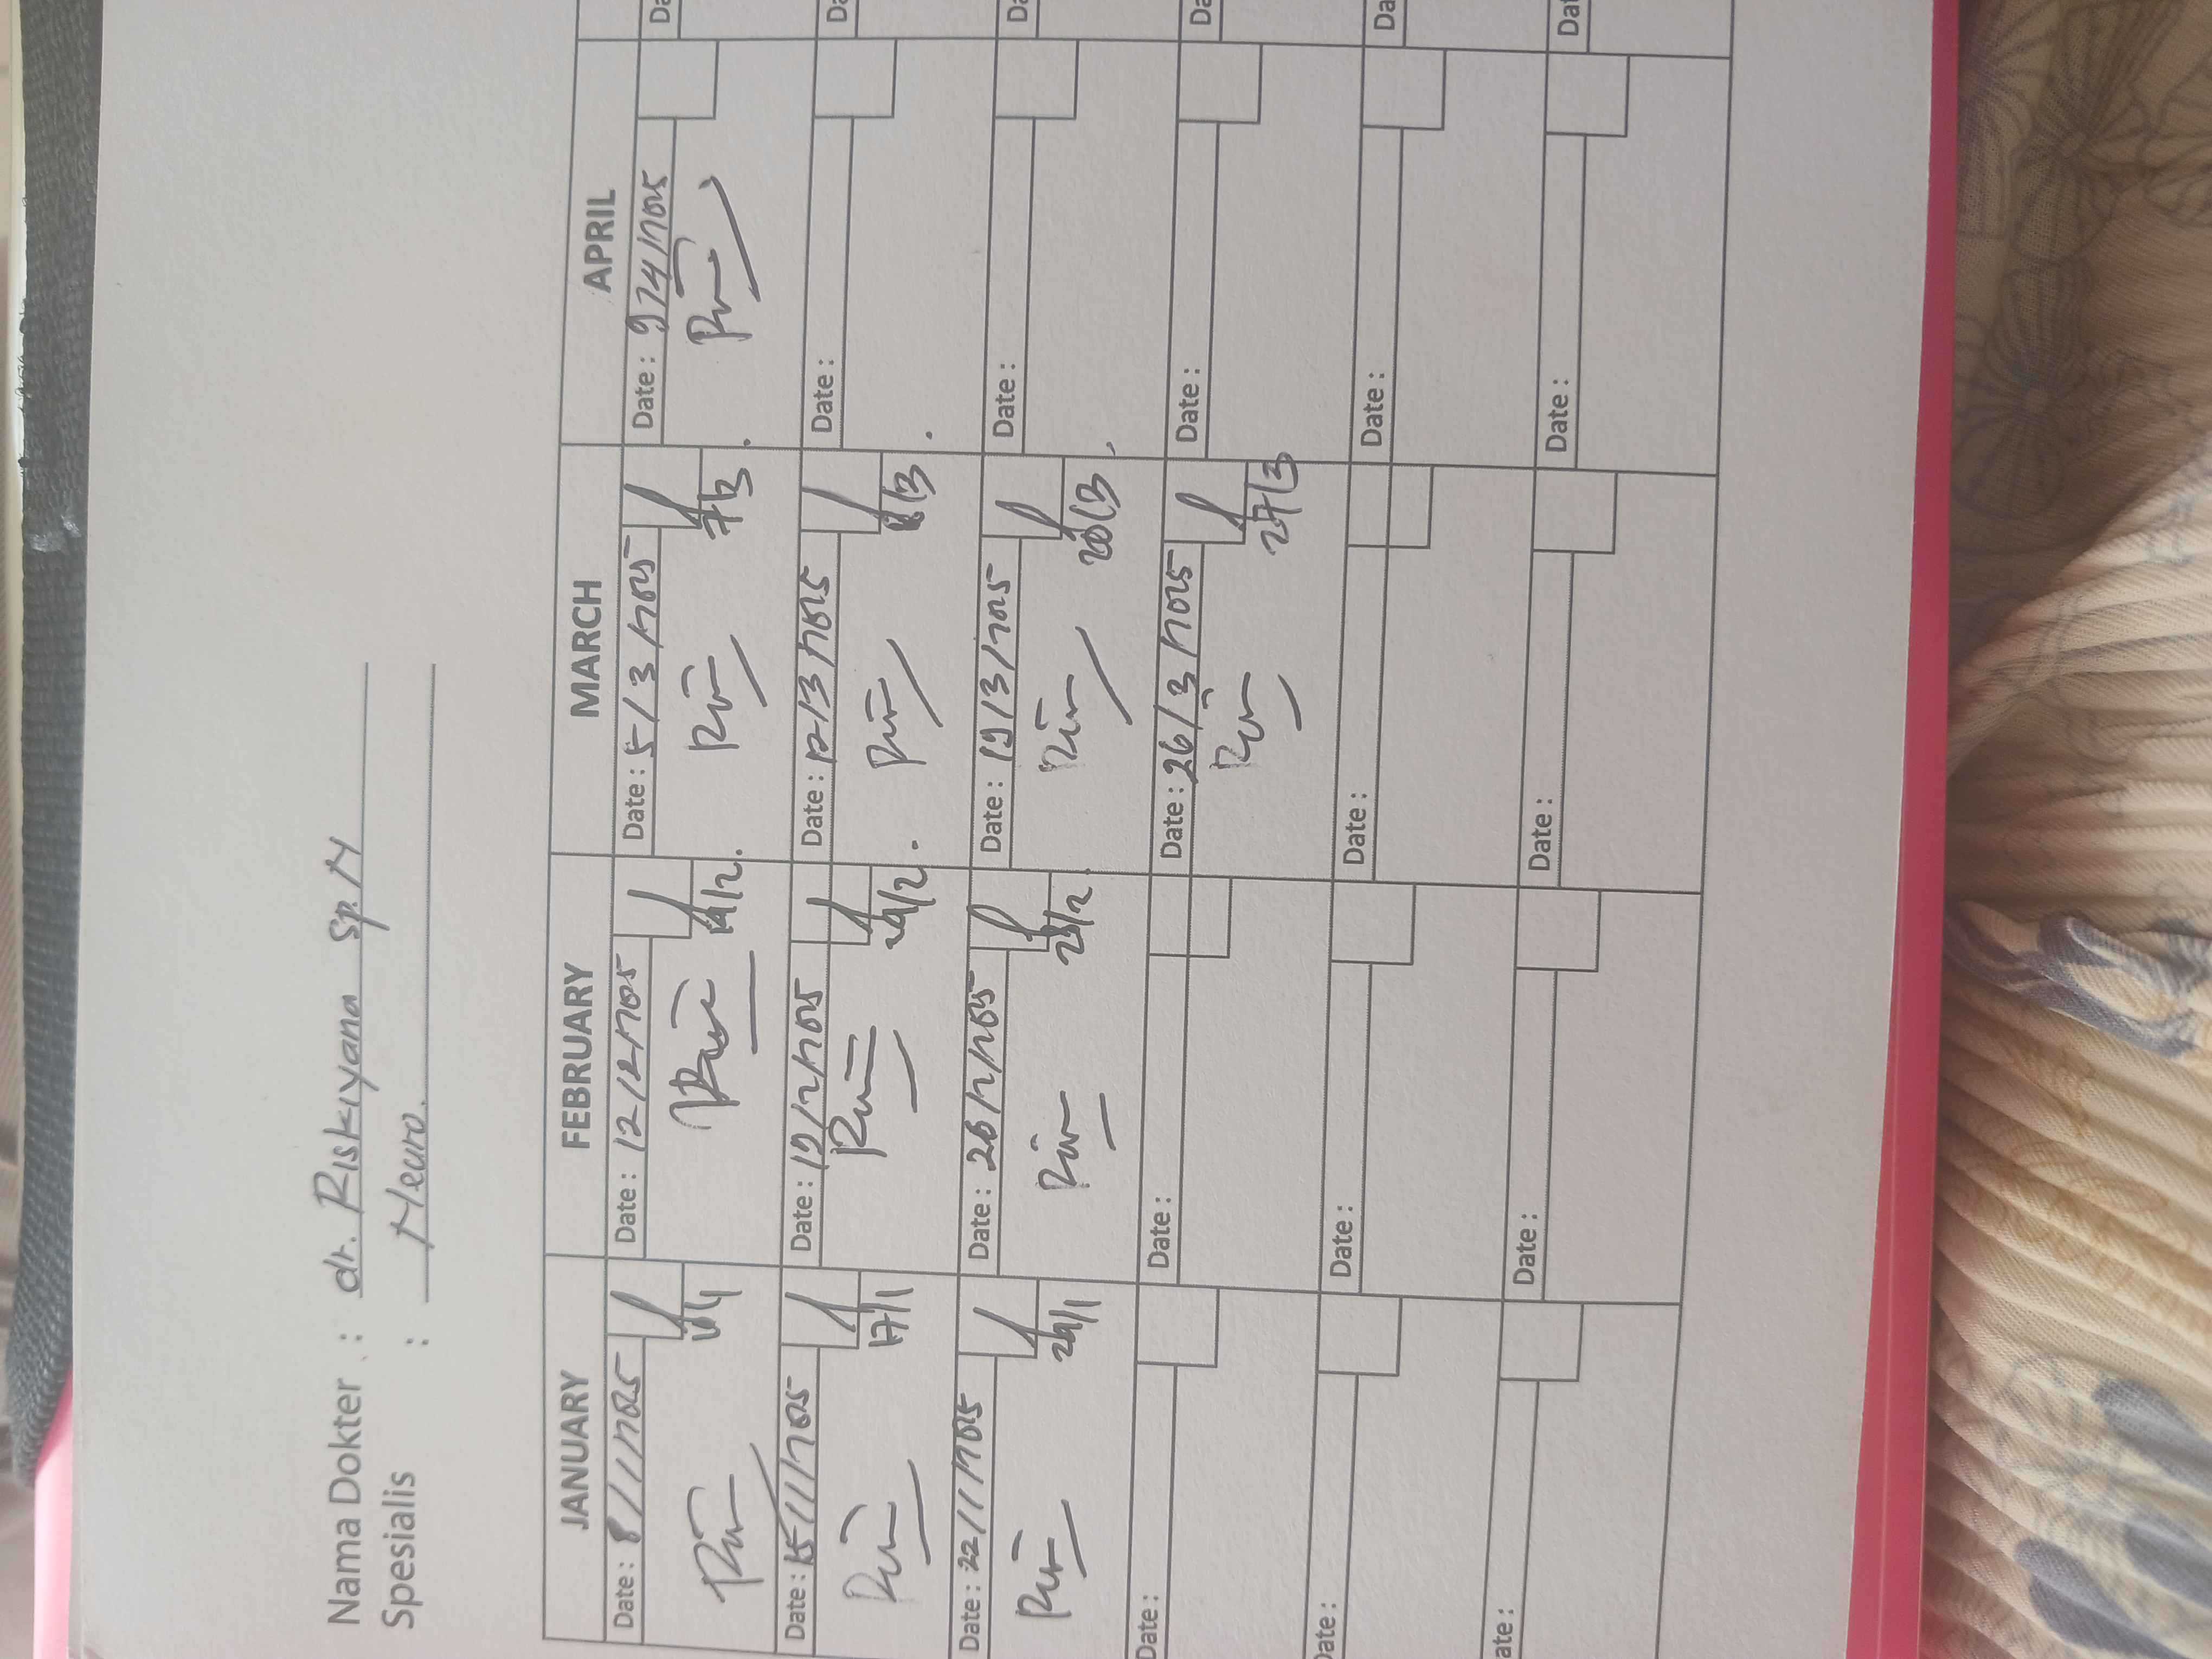 Nama Dokter : dr. Riskiyana Sp.N
Spesialis : Neuro.
JANUARY FEBRUARY MARCH APRIL
Date : 8/1/2025 Date : 12/2/2025 Date : 5/3/2025 Date : 9/4/2025 Da
14/2. 7/3.
Date : 15/1/2025 Date : 19/2/2025 Date : 12/3/2025 Date : Da
17/1 /3.
Date : 22/1/2025 Date : 26/2/2025 Date : 19/3/2025 Date : Da
24/1 28/2 20/3
Date : Date : Date : 26/3/2025 Date : Da
27/3
Date : Date : Date : Date : Da
ate : Date : Date : Date : Dat